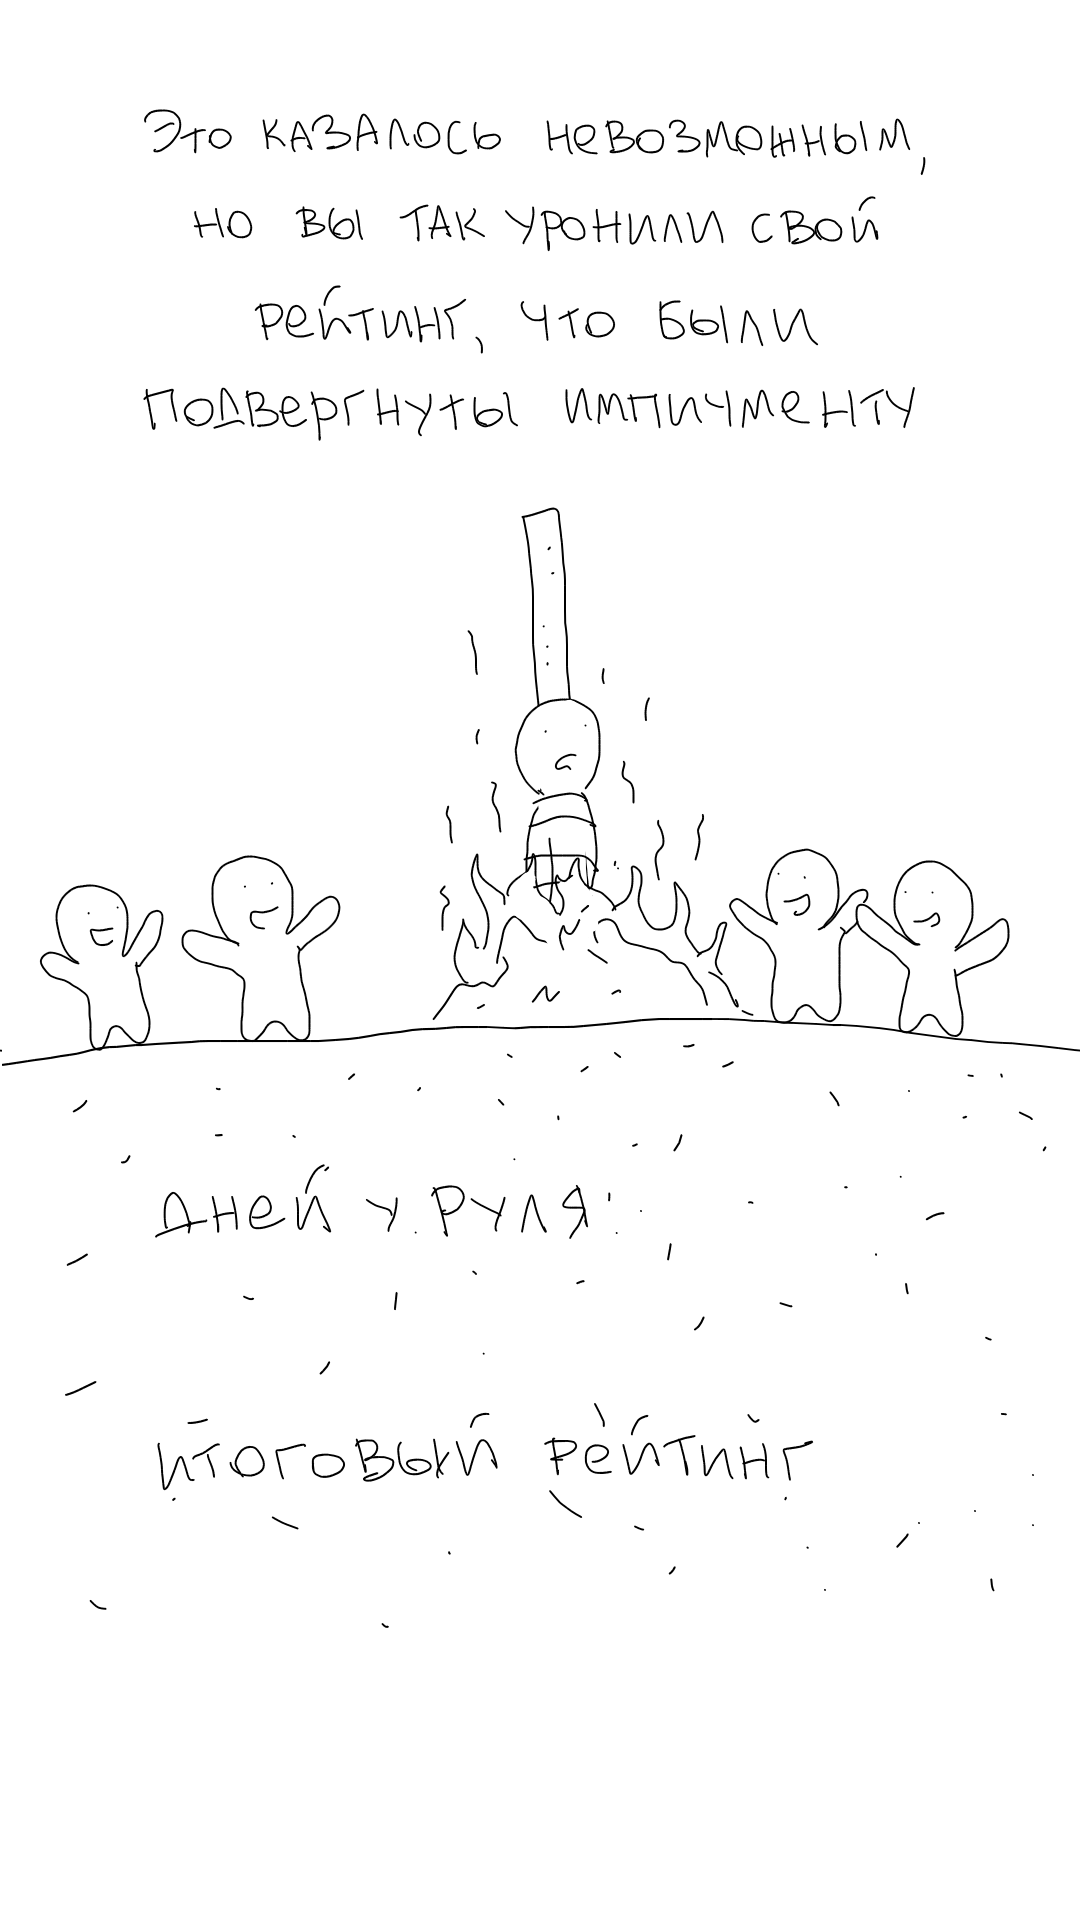 Это казалось невозможным,
но вы так уронили свой
рейтинг, что были
подвергнуты импичменту
дней у руля:
итоговый рейтинг